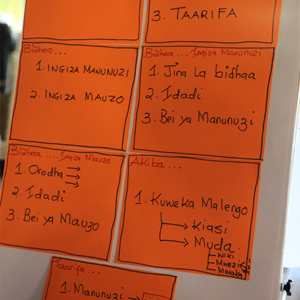 3. TAARIFA
Bidhaa...
1. INGIZA MANUNUZI
2. INGIZA MAUZO
Bidhaa... Ingiza Manunuzi
1. Jina la bidhaa
2. Idadi
3. Bei ya Manunuzi
Bidhaa... Ingiza Mauzo
1. Orodha
2. Idadi
3. Bei ya Mauzo
Akiba...
1. Kuweka Malengo
Kiasi
Muda
Wiki
Mwezi
Mwaka
Taarifa...
1. Manunuzi